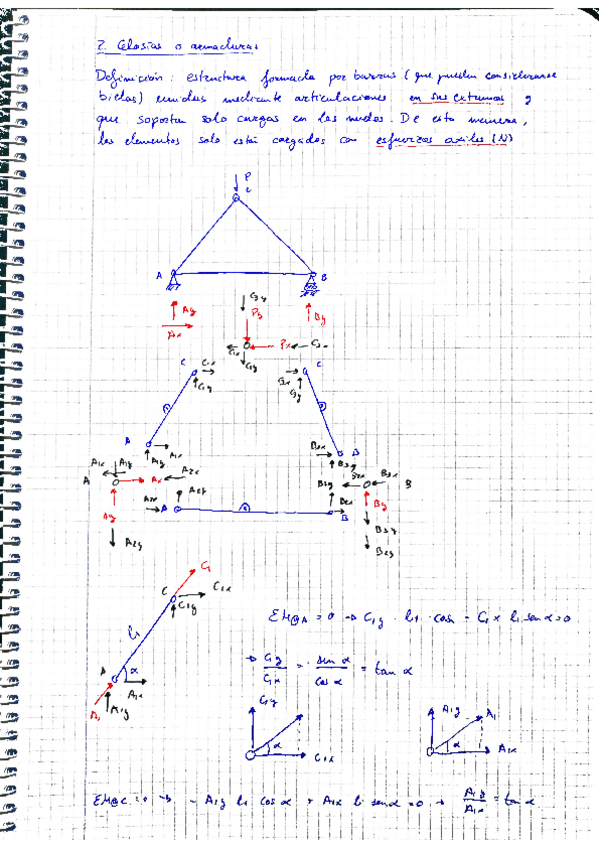 2. Celosías o armaduras
Definición: estructura formada por barras (que pueden considerarse
bielas) unidas mediante articulaciones en sus extremos y
que soportan solo cargas en los nudos. De esta manera,
los elementos solo están cargados con esfuerzos axiles (N)
P
C
A B
Ay C3y Py By
Ax C1x C1y Px C3x
C C1x C1y C3x C3y C
A A1x A1y B3x B3y B
A A1x A1y Ax A2x B2y B2x B3x B
Ay A2x A2y A B2x B By B3y
A2y B2y
C1
C C1x
C1y
l1
A α A1x
A1 A1y
ΣM@A = 0 → C1y · l1 · cos α - C1x l1 sen α = 0
→ C1y / C1x = sen α / cos α = tan α
C1y α C1x
A1y A1 α A1x
ΣM@C = 0 → - A1y l1 cos α + A1x l1 sen α = 0 → A1y / A1x = tan α